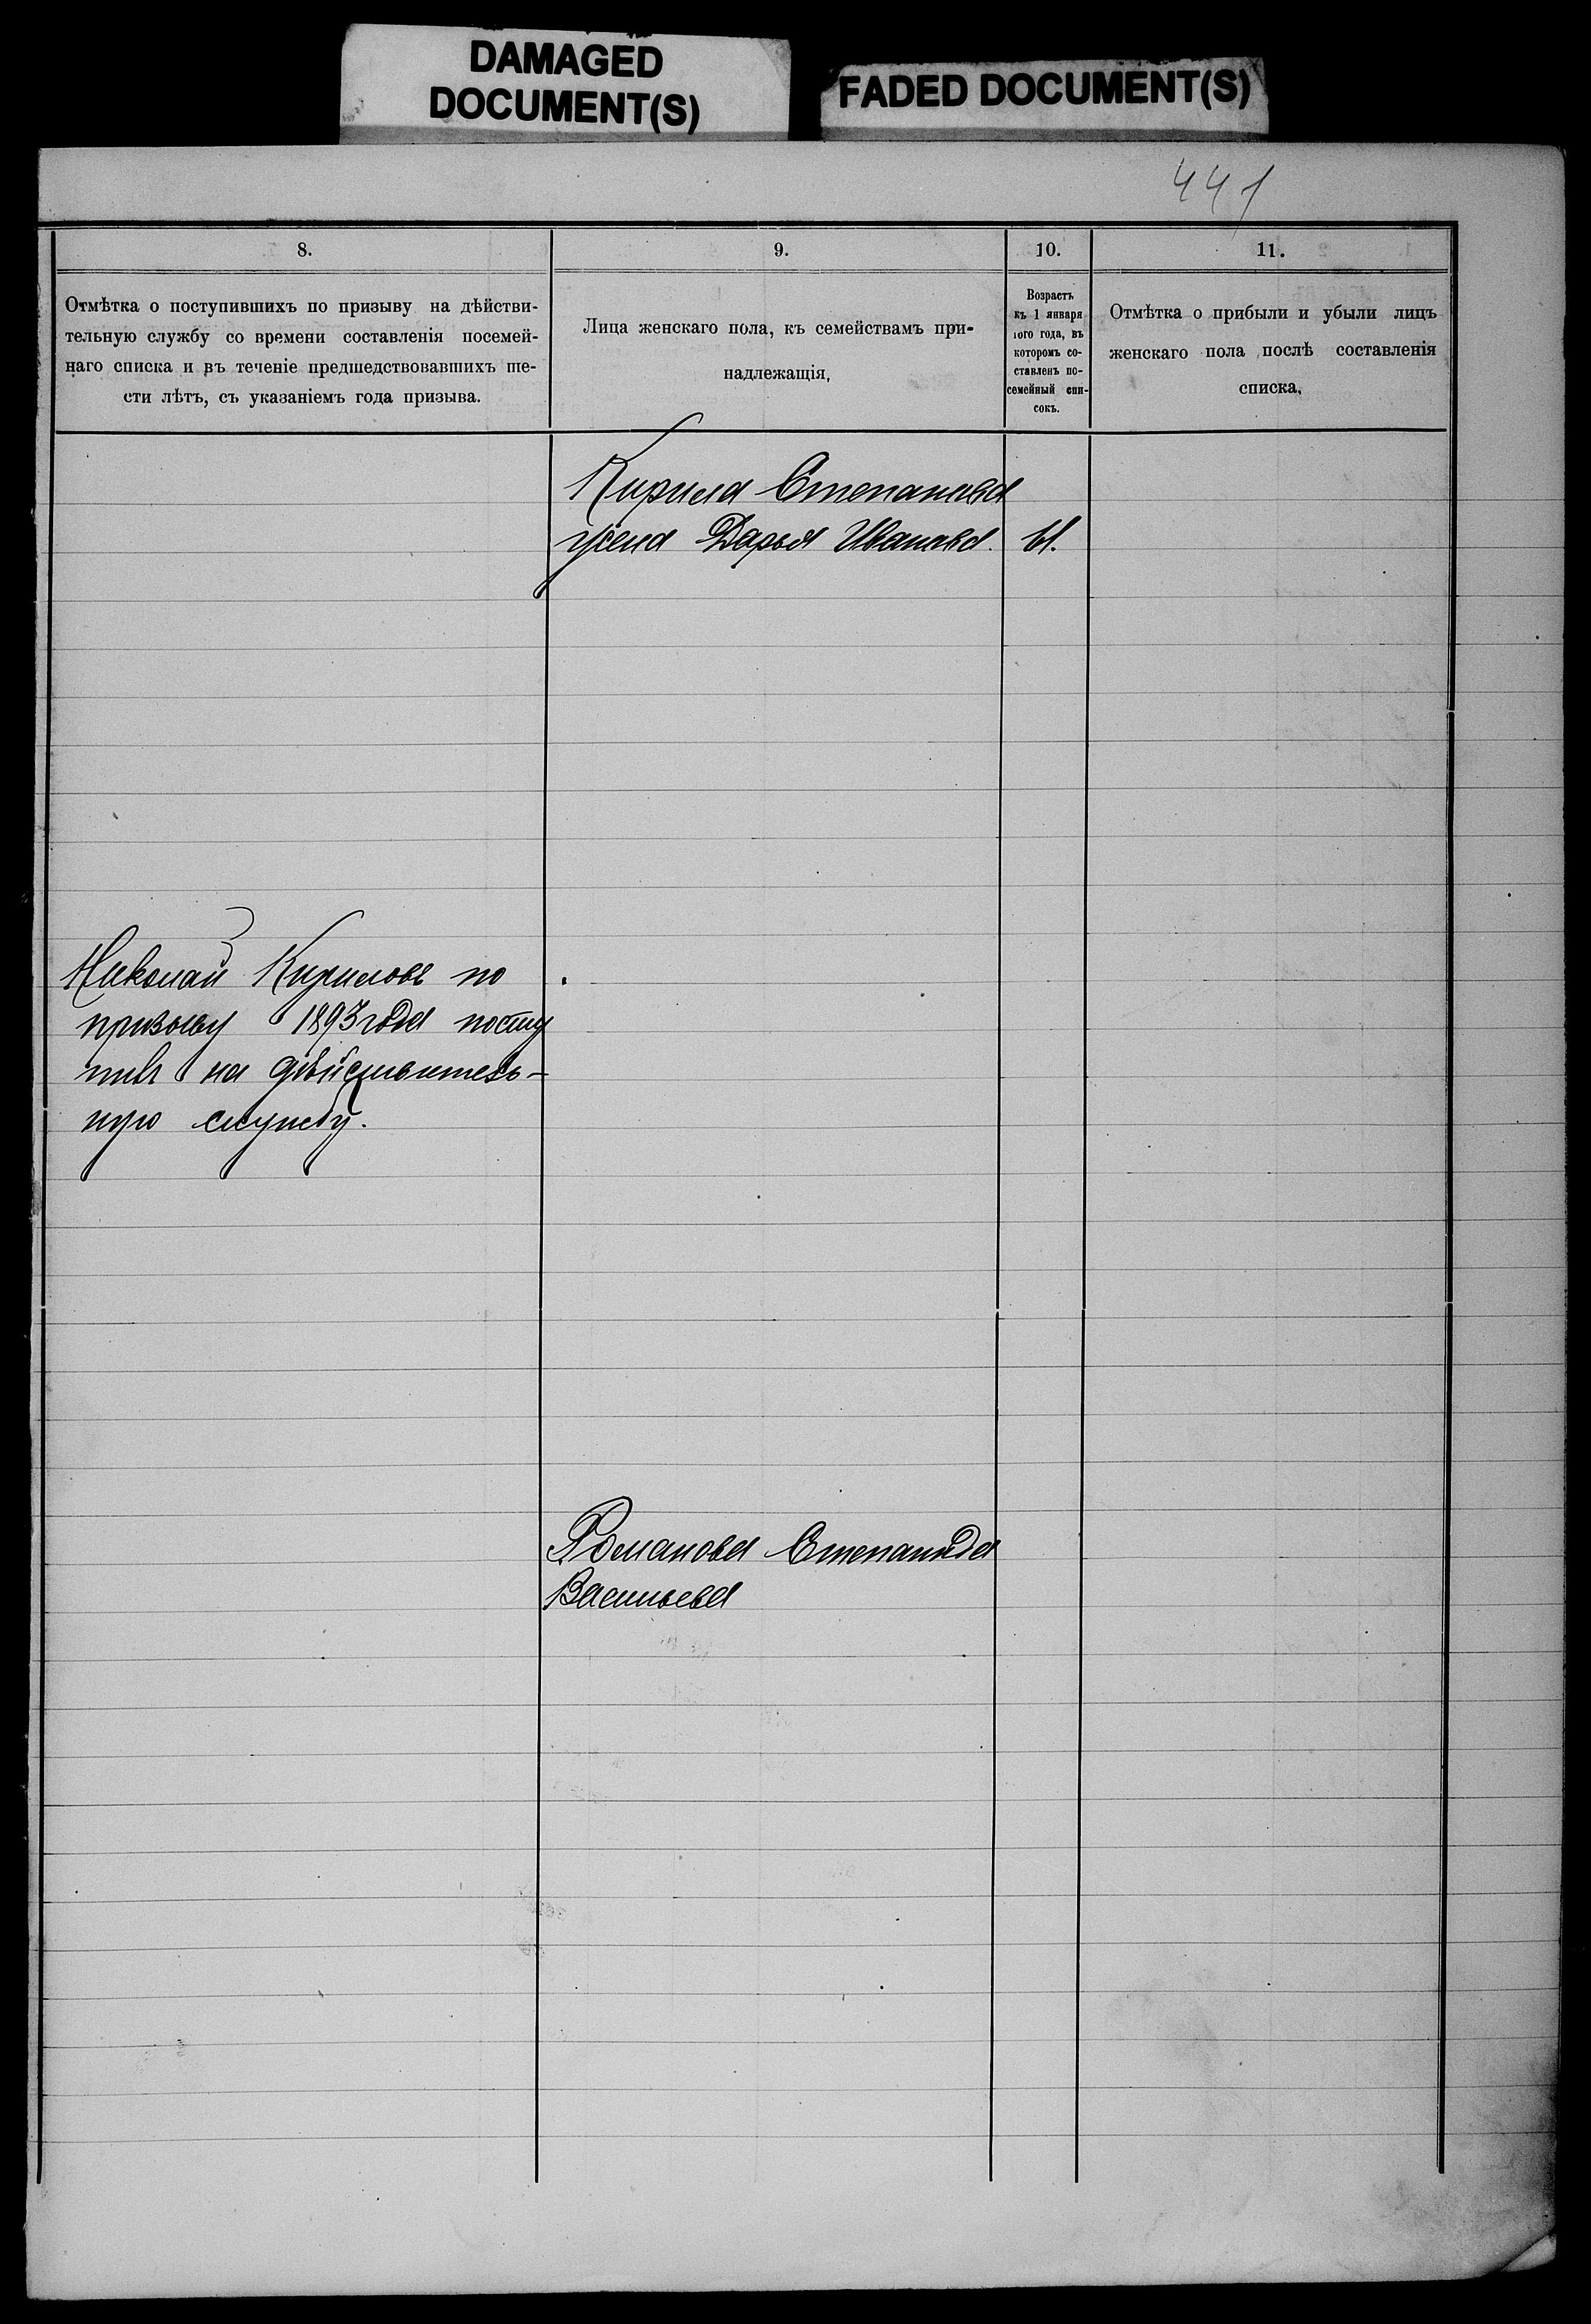 DAMAGED
DOCUMENT(S)
FADED DOCUMENT(S)
441
8.
9.
10.
11.
Отмѣтка о поступившихъ по призыву на дѣйстви-
тельную службу со времени составленія посемей-
наго списка и въ теченіе предшедствовавшихъ ше-
сти лѣтъ, съ указаніемъ года призыва.
Лица женскаго пола, къ семействамъ при-
надлежащія,
Возрастъ
къ 1 января
того года, въ
которомъ со-
ставленъ по-
семейный спи-
сокъ.
Отмѣтка о прибыли и убыли лицъ
женскаго пола послѣ составленія
списка.
Кирила Степанова
жена Дарья Иванова.
Николай Кириловъ по
призыву 1893 года посту
пилъ на дѣйствитель-
ную службу.
Романова Степанида
Васильева